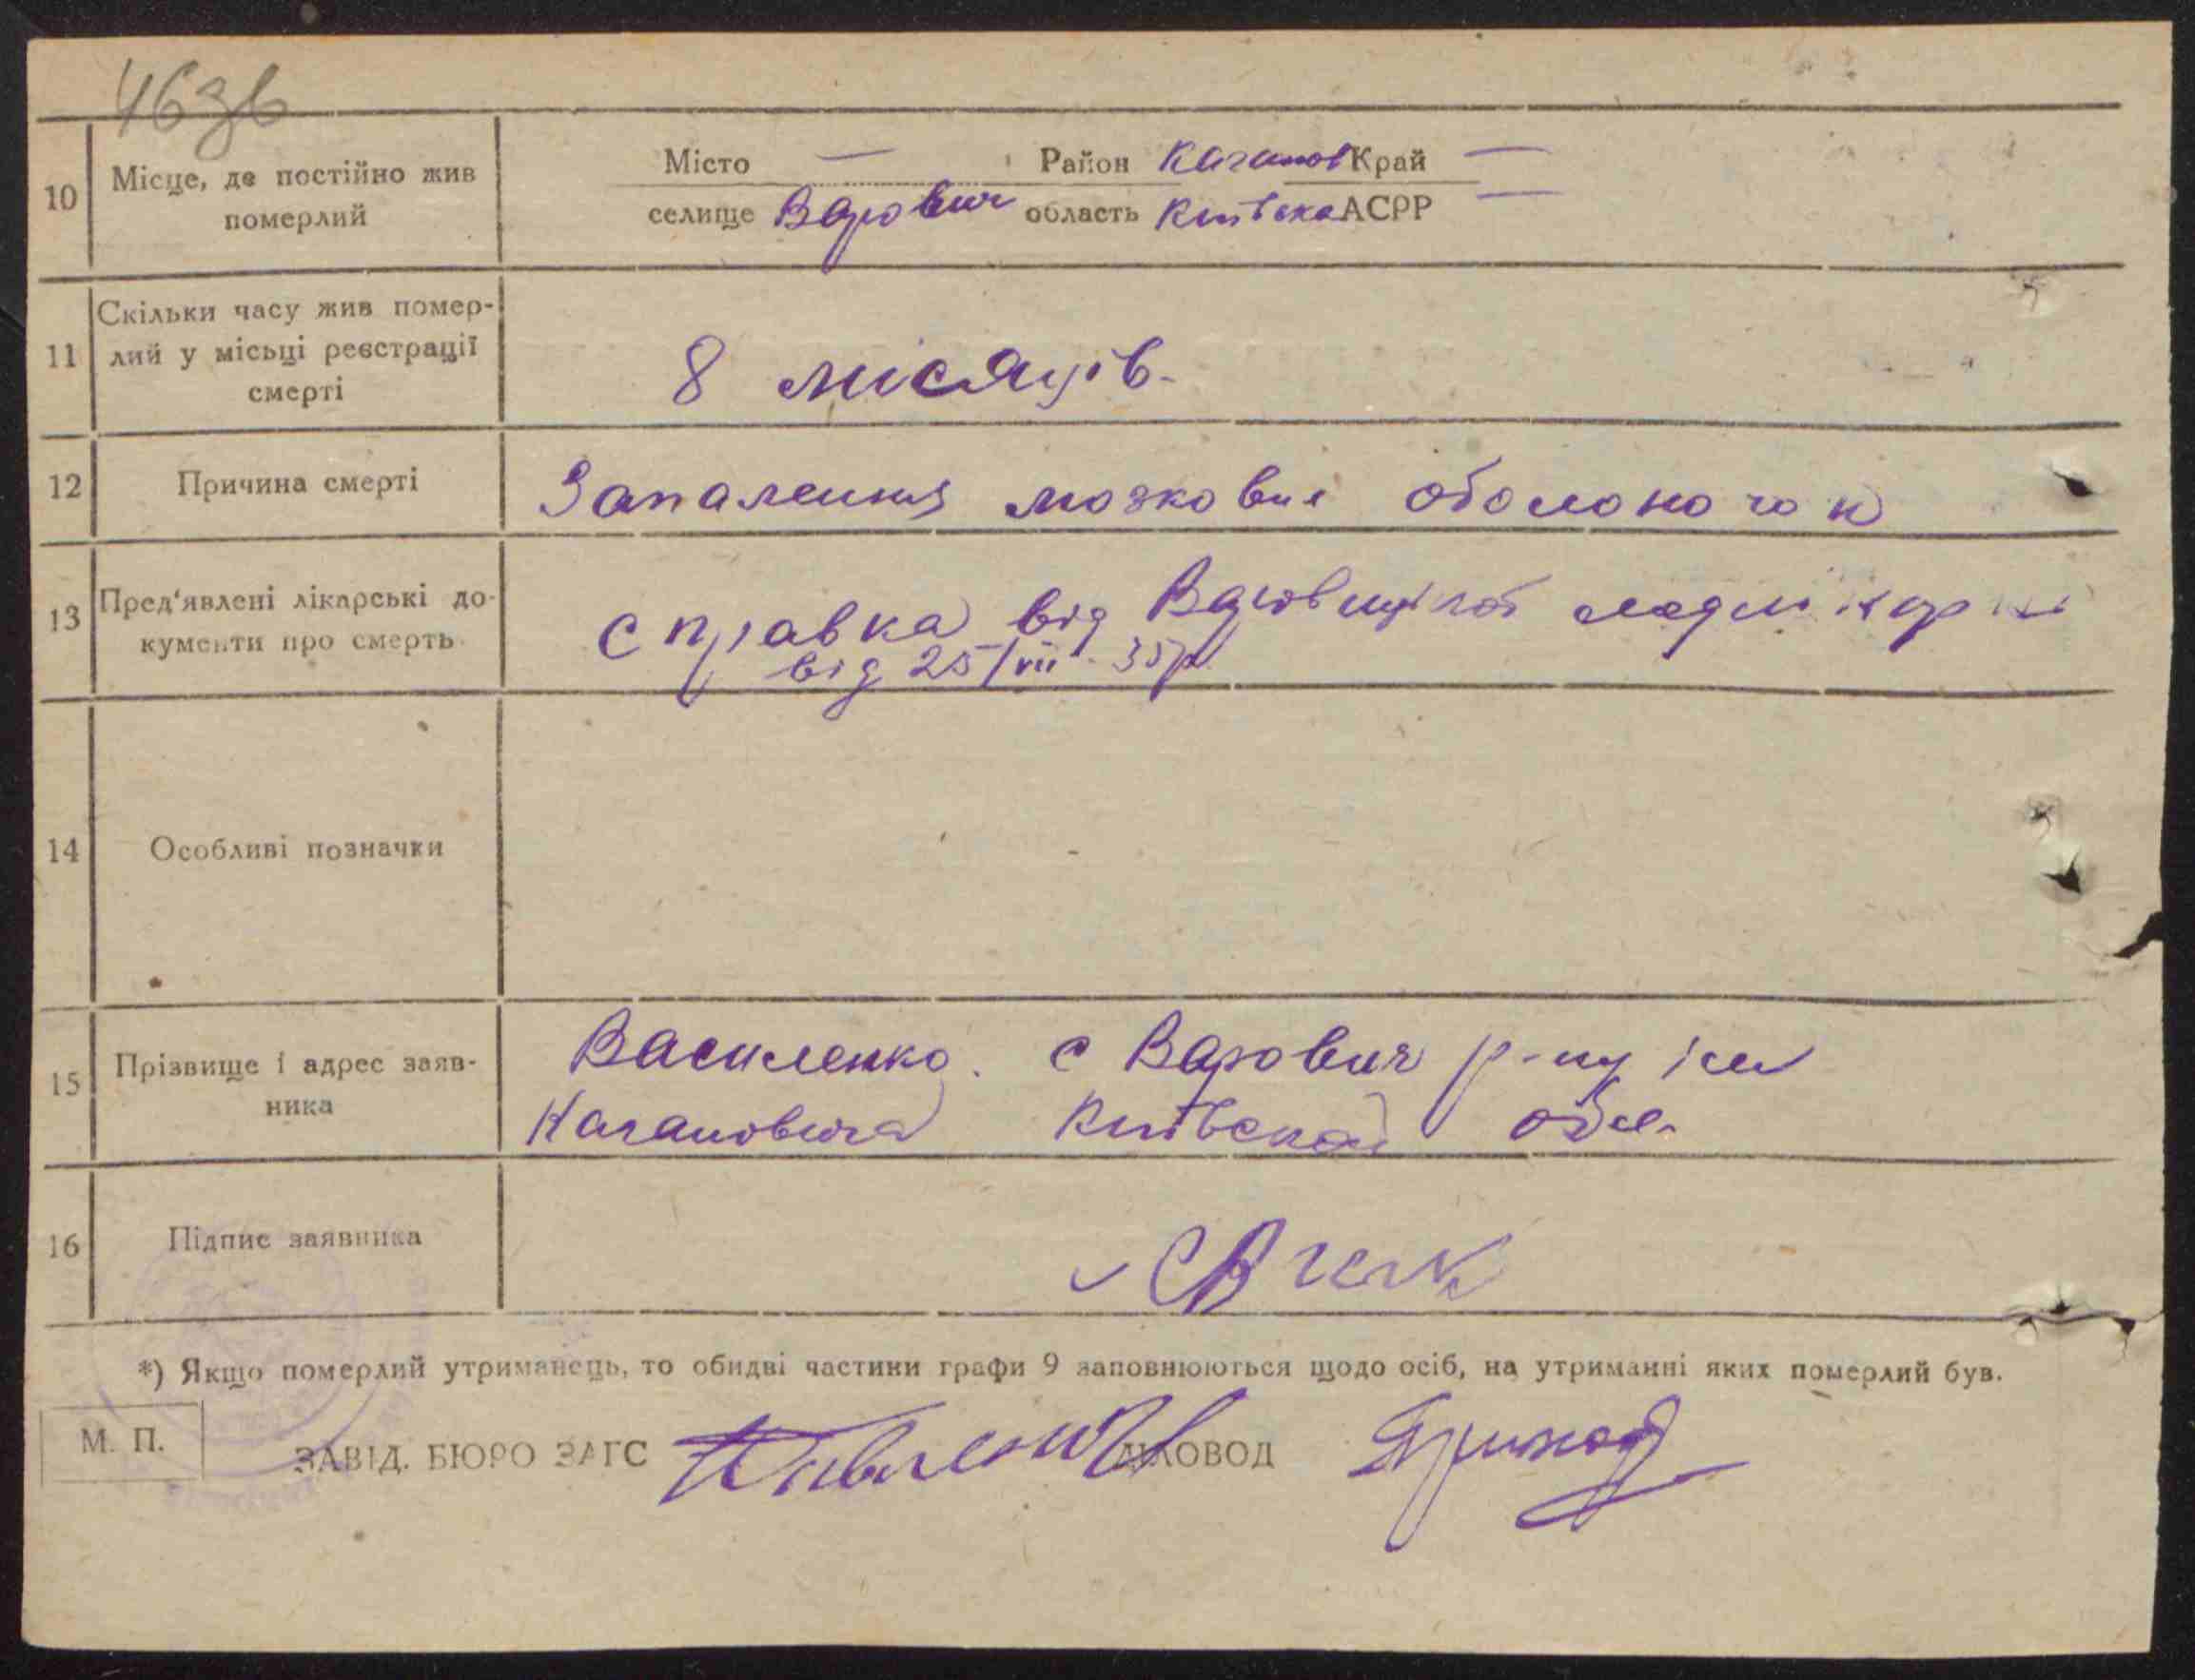 463б
10 Місце, де постійно жив померлий
Місто — Район Каганов Край —
селище Варович область Київська АСРР —
11 Скільки часу жив помер-
лий у місьці реєстрації
смерті
8 місяців.
12 Причина смерті
Запалення мозковие оболоночок
13 Пред'явлені лікарські до-
кументи про смерть
справка від
від 25/VII - 35р
14 Особливі позначки
15 Прізвище і адрес заяв-
ника
Василенко. с Варович р-ну ім
Кагановича Київської обл.
16 Підпис заявника
*) Якщо померлий утриманець, то обидві частини графи 9 заповнюються щодо осіб, на утриманні яких померлий був.
М. П.
ЗАВІД. БЮРО ЗАГС ДІЛОВОД